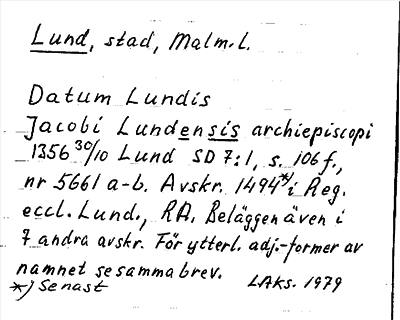 Lund, stad, Malm.l.
Datum Lundis
Jacobi Lundensis archiepiscopi
1356 30/10 Lund SD 7:1, s. 106 f.,
nr 5661 a-b. Avskr. 1494*) i Reg.
eccl. Lund., RA. Beläggen även i
7 andra avskr. För ytterl. adj.-former av
namnet se samma brev.
*) Senast LAKs. 1979